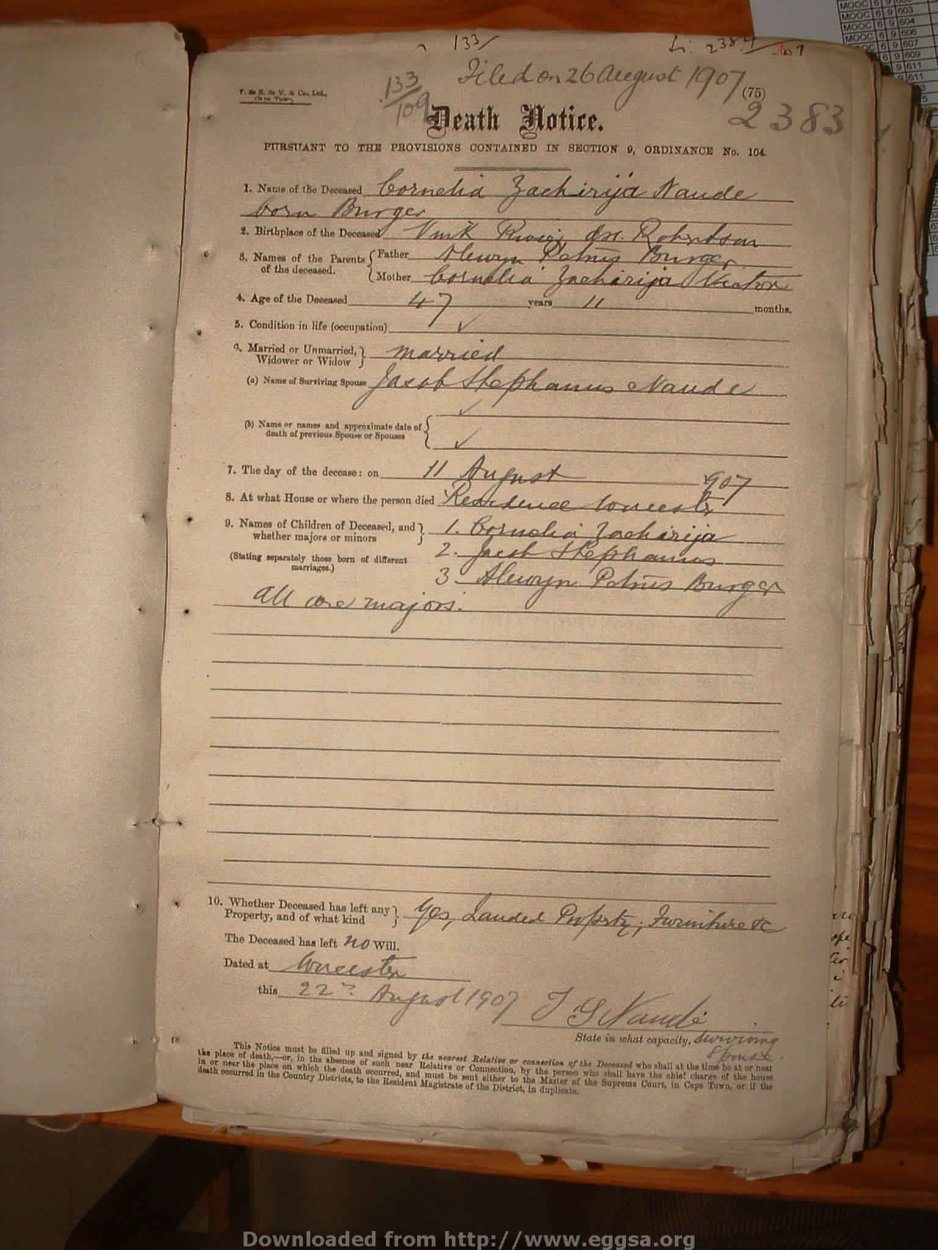 MOOC 6 9 604
MOOC 6 9 606
6 9 607
6 9 609
6 9 611
133/
Filed on 26 August 1907
(75)
T. de S. de V. & Co., Ltd.,
Cape Town.
133/109
2383
Death Notice.
PURSUANT TO THE PROVISIONS CONTAINED IN SECTION 9, ORDINANCE No. 104.
1. Name of the Deceased Cornelia Zacharija Naude
born Burger
2. Birthplace of the Deceased Vink Rivier Dist. Robertson
3. Names of the Parents of the deceased. Father Alewyn Petrus Burger
Mother Cornelia Zacharija
4. Age of the Deceased 47 years 11 months.
5. Condition in life (occupation) ✓
6. Married or Unmarried, Widower or Widow married
(a) Name of Surviving Spouse Jacob Stephanus Naude
✓
(b) Name or names and approximate date of
death of previous Spouse or Spouses ✓
7. The day of the decease: on 11 August 1907
8. At what House or where the person died Residence Worcester
9. Names of Children of Deceased, and 1. Cornelia Zacharija
whether majors or minors 2. Jacob Stephanus
(Stating separately those born of different
marriages.) 3. Alewyn Petrus Burger
All are majors.
10. Whether Deceased has left any
Property, and of what kind Yes, Landed Property, Furniture &c
The Deceased has left no Will.
Dated at Worcester
this 22nd August 1907 J S Naudé
State in what capacity, Surviving
Spouse.
This Notice must be filled up and signed by the nearest Relative or connection of the Deceased who shall at the time be at or near
the place of death,—or, in the absence of such near Relative or Connection, by the person who shall have the chief charge of the house
in or near the place on which the death occurred, and must be sent either to the Master of the Supreme Court, in Cape Town, or if the
death occurred in the Country Districts, to the Resident Magistrate of the District, in duplicate.
Downloaded from http://www.eggsa.org